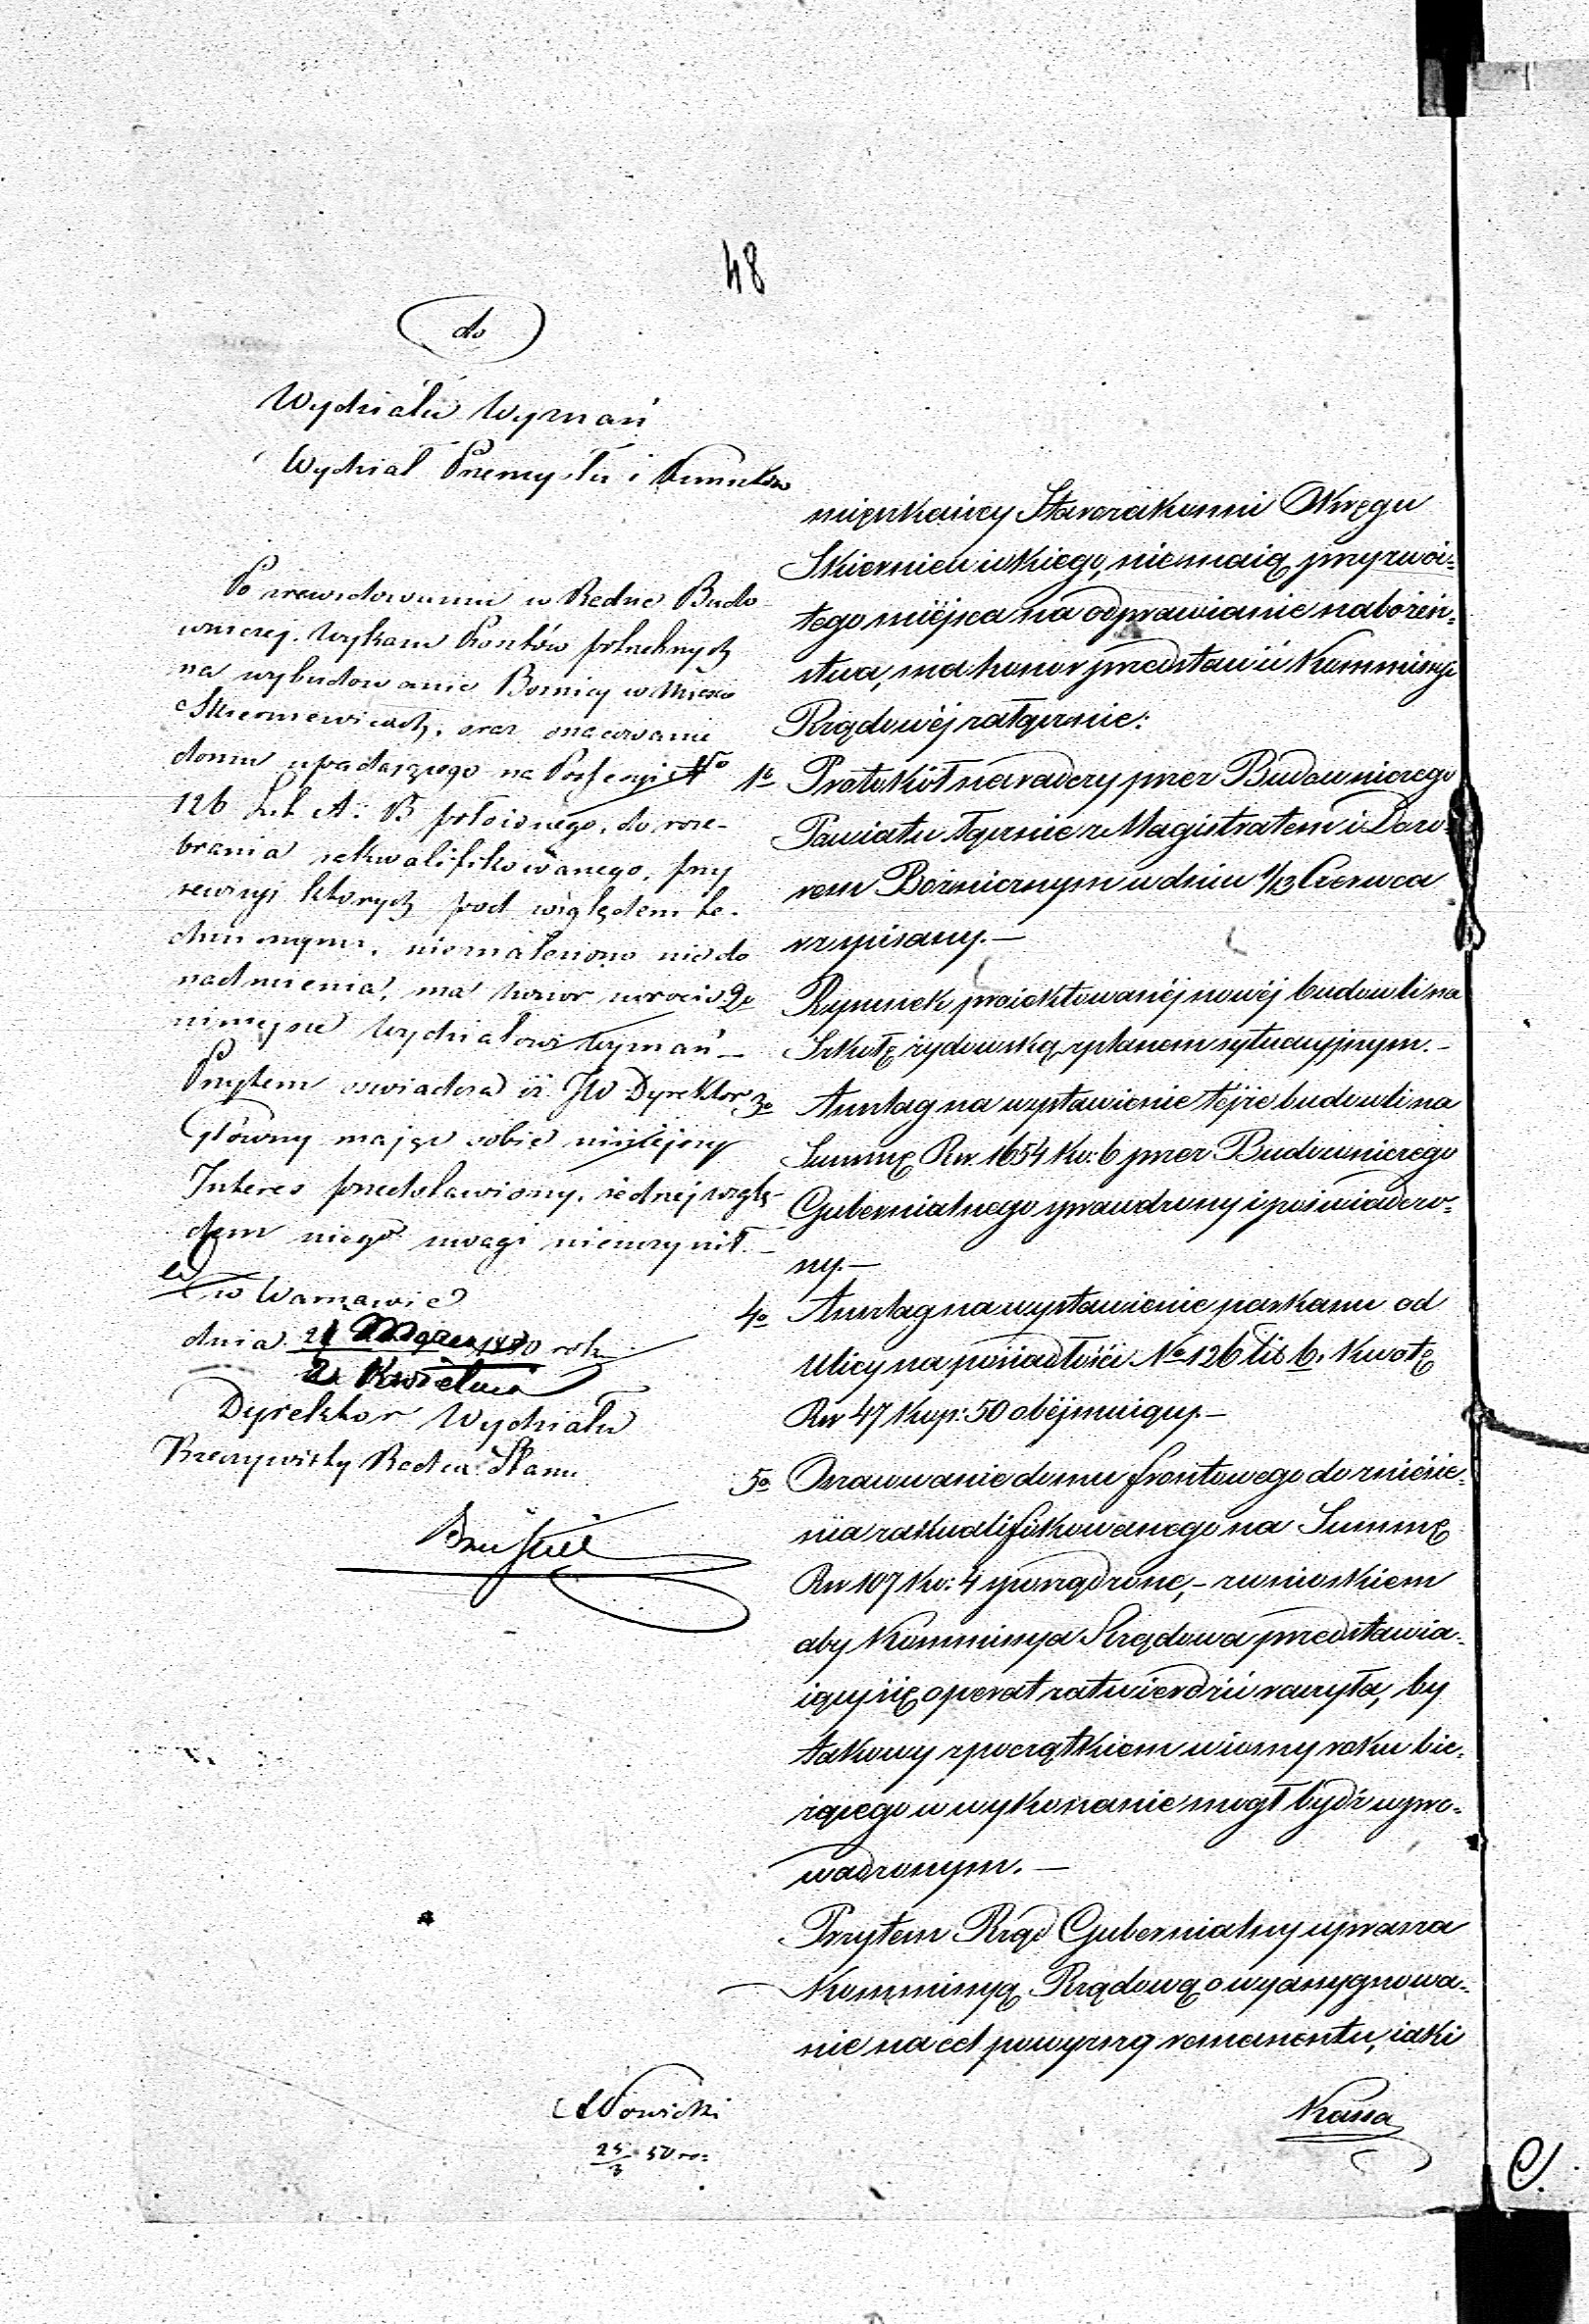 48
do
Wydziału Wyznań
Wydział Przemysłu i Kunsztów
Po zrewidowaniu w Radzie Budo
wniczej Wykazu Kosztów potrzebnych
na wybudowanie Boznicy w Mieście
Skierniewicach, oraz oszacowanie
domu upadającego na Possessyi No
126 Lit A: B położonego, do roze-
brania zakwalifikowanego, przy
rewizyi których pod względem te-
chnicznym, nieznaleziono nic do
nadmienia, ma honor zwrócić
niniejsze Wydziałowi Wyznań —
Przytem oswiadcza iż JW Dyrektor
Główny mając sobie niniejszy
Interes przedstawiony, żadnej wzglę-
dem niego uwagi nieuczynił. —
w Warszawie
dnia 21 Marca 1850 roku
2 Kwietnia
Dyrektor Wydziału
Rzeczywisty Radca Stanu
Nowicki
25/3 50 ro:
mięszkańcy Starozakonni Okręgu
Skierniewickiego, niemaią przyzwoi-
tego miéjsca na odprawianie nabożeń-
stwa, ma honor przedstawić Kommissyi
Rządowéj załącznie:
1o Protokół naradczy przez Budowniczego
Powiatu łącznie z Magistratem i Dozo-
rem Bożnicznym w dniu 1/13 Czerwca
r z spisany. —
2o Rysunek proiektowanéj nowéj budowli na
Szkołę żydowską z planem sytuacyjnym. —
3o Anszlag na wystawienie téjże budowli na
Summę Rsr. 1654 Ko: 6 przez Budowniczego
Gubernialnego sprawdzony i poświadczo-
ny. —
4o Anszlag na wystawienie parkanu od
Ulicy na posiadłości No 126 lit b. Kwotę
Rsr 47 Kop: 50 obéjmuiący. —
5o Oszacowanie domu frontowego do zniesie-
nia zakwalifikowanego na Summę
Rsr 107 Ko: 4 sporządzone, — z wnioskiem
aby Kommissya Rządowa przedstawia-
iący się operat zatwierdzić raczyła, by
takowy z początkiem wiosny roku bie-
żącego w wykonanie mógł bydź wpro-
wadzonym. —
Przytem Rząd Gubernialny uprasza
Kommissyą Rządową o wyassygnowa-
nie na cel powyższy remanentu, iaki
Kassa